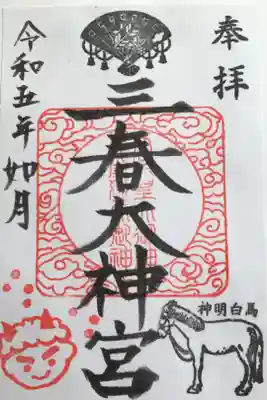 奉拝
三春大神宮
令和五年如月
神明白馬